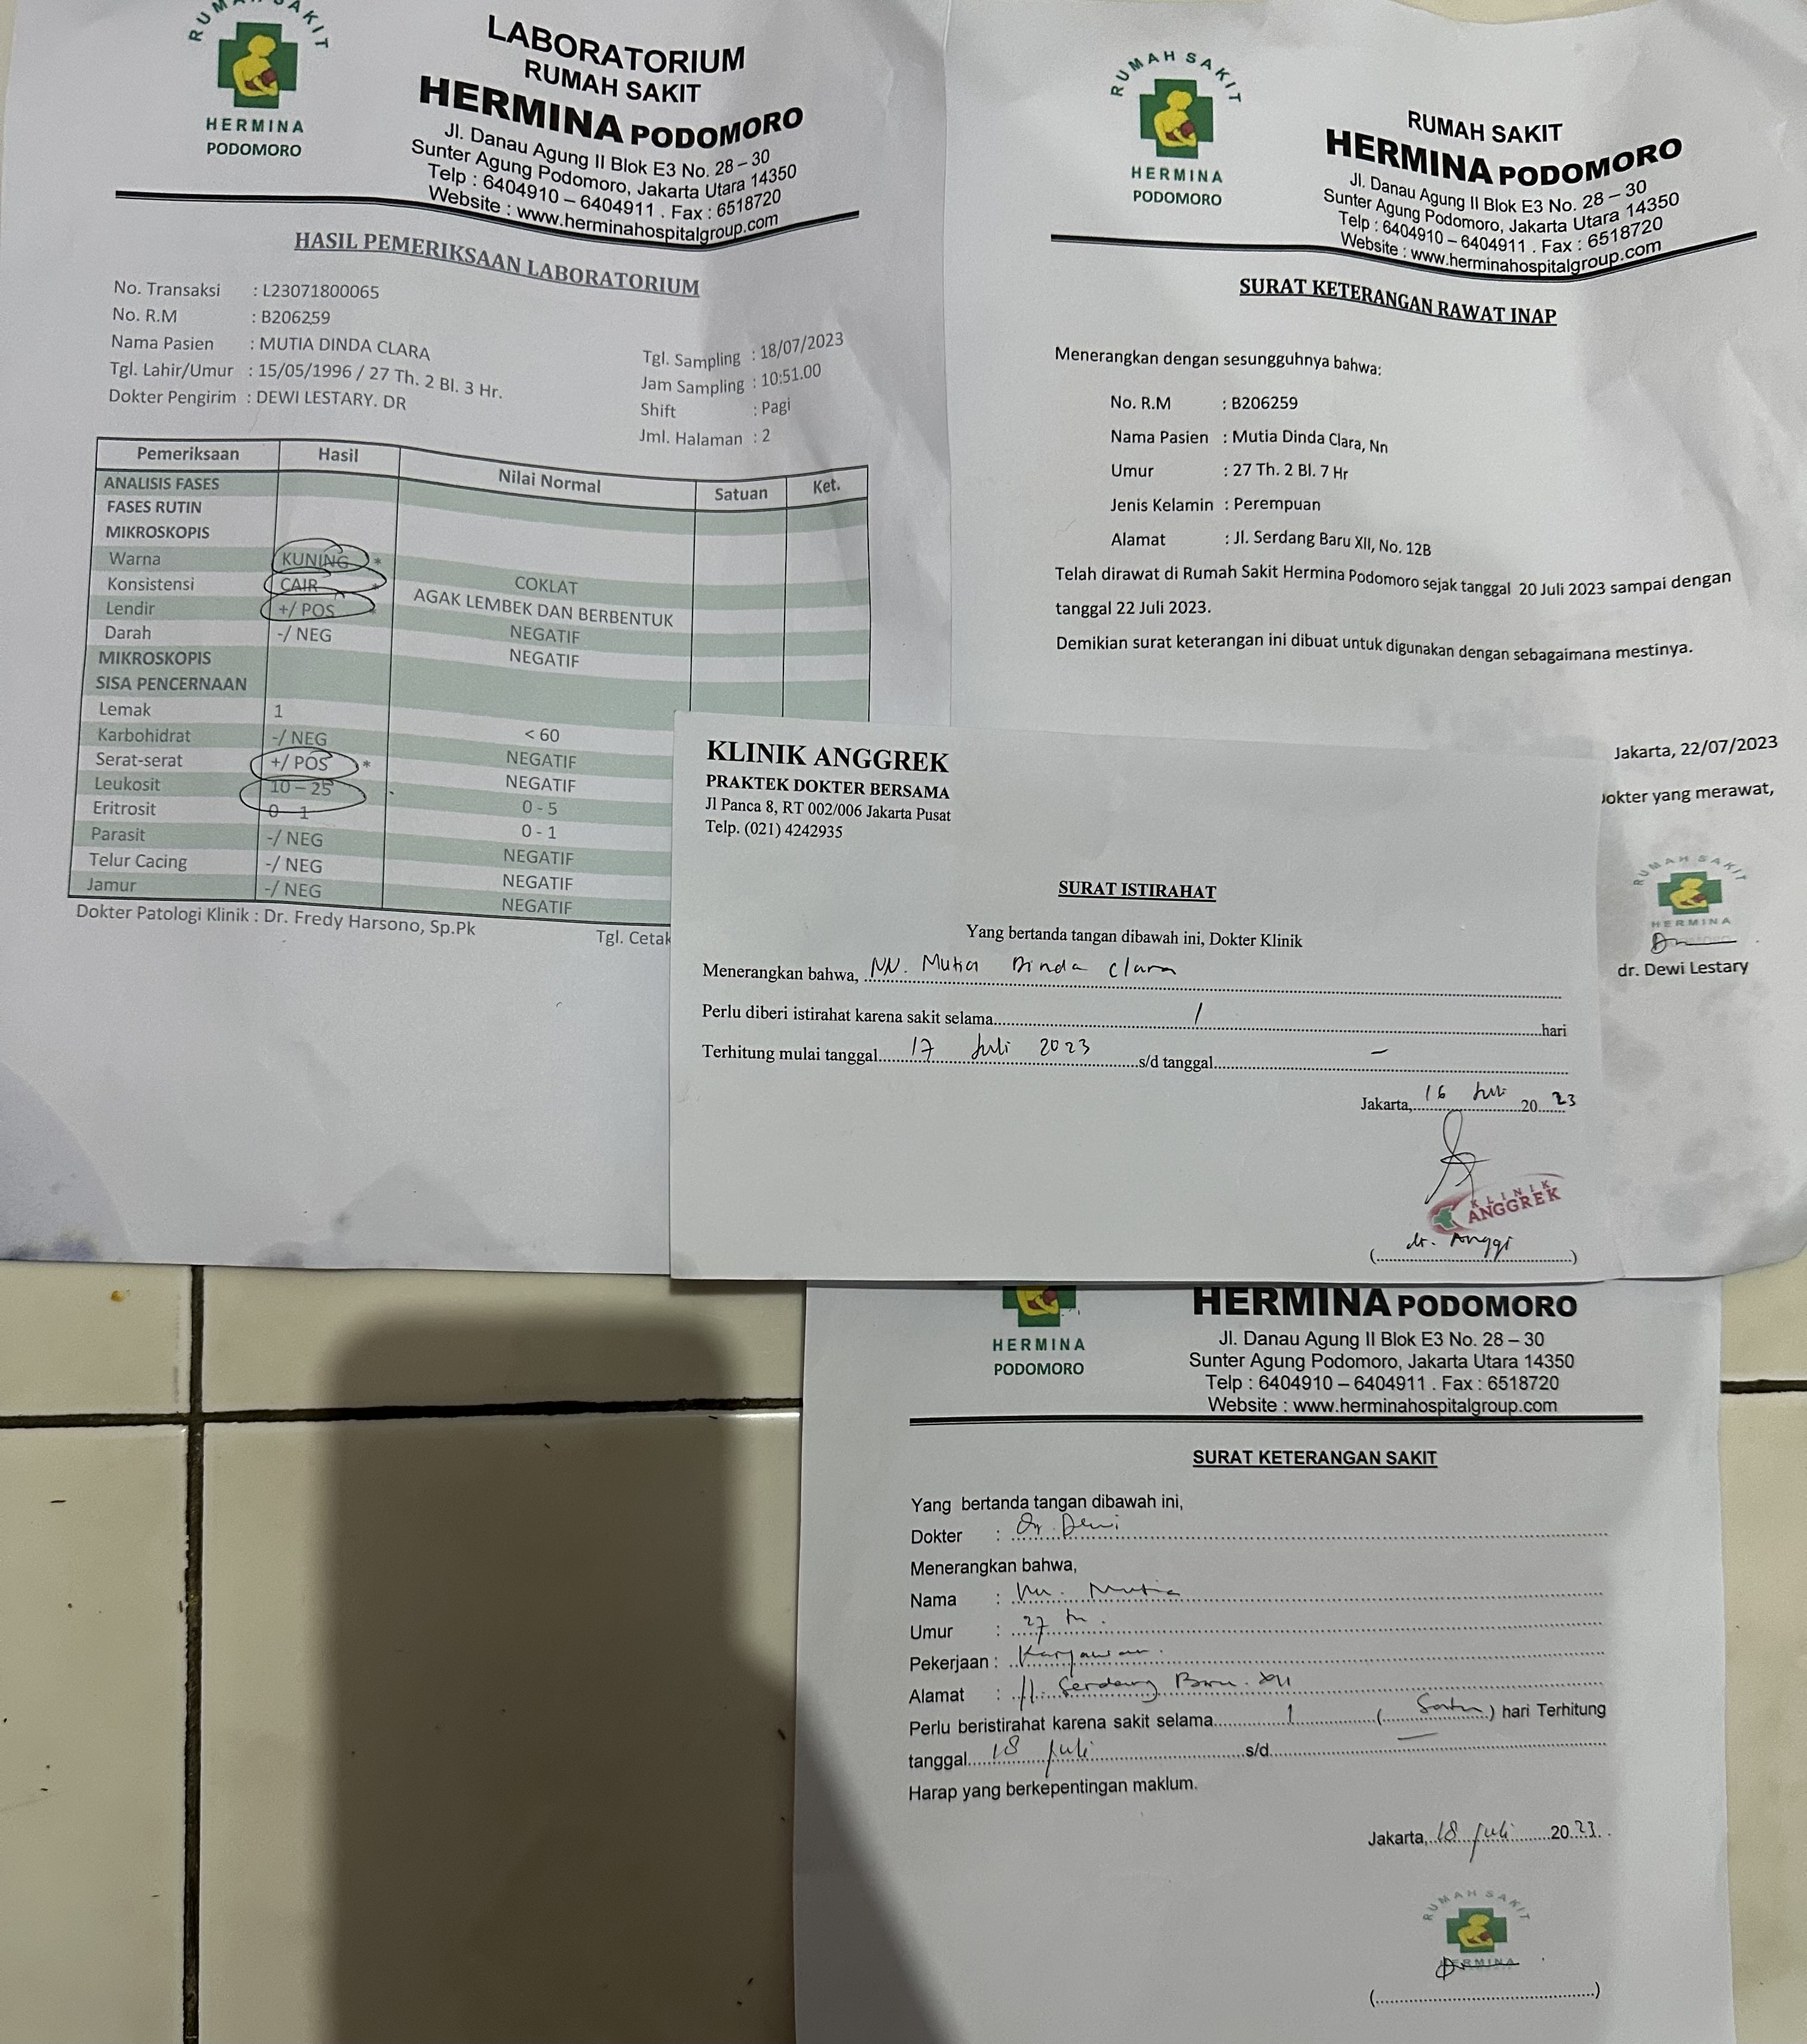 RUMAH SAKIT
HERMINA
PODOMORO
LABORATORIUM
RUMAH SAKIT
HERMINA PODOMORO
Jl. Danau Agung II Blok E3 No. 28 – 30
Sunter Agung Podomoro, Jakarta Utara 14350
Telp : 6404910 – 6404911 . Fax : 6518720
Website : www.herminahospitalgroup.com
HASIL PEMERIKSAAN LABORATORIUM
No. Transaksi : L23071800065
No. R.M : B206259
Nama Pasien : MUTIA DINDA CLARA
Tgl. Lahir/Umur : 15/05/1996 / 27 Th. 2 Bl. 3 Hr.
Dokter Pengirim : DEWI LESTARY. DR
Tgl. Sampling : 18/07/2023
Jam Sampling : 10:51.00
Shift : Pagi
Jml. Halaman : 2
Pemeriksaan Hasil Nilai Normal Satuan Ket.
ANALISIS FASES
FASES RUTIN
MIKROSKOPIS
Warna KUNING * COKLAT
Konsistensi CAIR * AGAK LEMBEK DAN BERBENTUK
Lendir +/ POS * NEGATIF
Darah -/ NEG NEGATIF
MIKROSKOPIS
SISA PENCERNAAN
Lemak 1 < 60
Karbohidrat -/ NEG NEGATIF
Serat-serat +/ POS * NEGATIF
Leukosit 10 – 25 0 - 5
Eritrosit 0 - 1 0 - 1
Parasit -/ NEG NEGATIF
Telur Cacing -/ NEG NEGATIF
Jamur -/ NEG NEGATIF
Dokter Patologi Klinik : Dr. Fredy Harsono, Sp.Pk
Tgl. Cetak
RUMAH SAKIT
HERMINA
PODOMORO
RUMAH SAKIT
HERMINA PODOMORO
Jl. Danau Agung II Blok E3 No. 28 – 30
Sunter Agung Podomoro, Jakarta Utara 14350
Telp : 6404910 – 6404911 . Fax : 6518720
Website : www.herminahospitalgroup.com
SURAT KETERANGAN RAWAT INAP
Menerangkan dengan sesungguhnya bahwa:
No. R.M : B206259
Nama Pasien : Mutia Dinda Clara, Nn
Umur : 27 Th. 2 Bl. 7 Hr
Jenis Kelamin : Perempuan
Alamat : Jl. Serdang Baru XII, No. 12B
Telah dirawat di Rumah Sakit Hermina Podomoro sejak tanggal 20 Juli 2023 sampai dengan
tanggal 22 Juli 2023.
Demikian surat keterangan ini dibuat untuk digunakan dengan sebagaimana mestinya.
Jakarta, 22/07/2023
Dokter yang merawat,
RUMAH SAKIT
HERMINA
dr. Dewi Lestary
KLINIK ANGGREK
PRAKTEK DOKTER BERSAMA
Jl Panca 8, RT 002/006 Jakarta Pusat
Telp. (021) 4242935
SURAT ISTIRAHAT
Yang bertanda tangan dibawah ini, Dokter Klinik
Menerangkan bahwa, NN. Mutia Dinda Clara
Perlu diberi istirahat karena sakit selama 1 hari
Terhitung mulai tanggal 17 Juli 2023 s/d tanggal –
Jakarta, 16 Juli 2023
KLINIK
ANGGREK
(dr. Anggi)
HERMINA
PODOMORO
HERMINA PODOMORO
Jl. Danau Agung II Blok E3 No. 28 – 30
Sunter Agung Podomoro, Jakarta Utara 14350
Telp : 6404910 – 6404911 . Fax : 6518720
Website : www.herminahospitalgroup.com
SURAT KETERANGAN SAKIT
Yang bertanda tangan dibawah ini,
Dokter : Dr. Dewi
Menerangkan bahwa,
Nama : Nn. Mutia
Umur : 27 th.
Pekerjaan : Karyawan.
Alamat : Jl. Serdang Baru XII
Perlu beristirahat karena sakit selama 1 (Satu) hari Terhitung
tanggal 18 Juli s/d –
Harap yang berkepentingan maklum.
Jakarta, 18 Juli 2023.
RUMAH SAKIT
HERMINA
(.....)